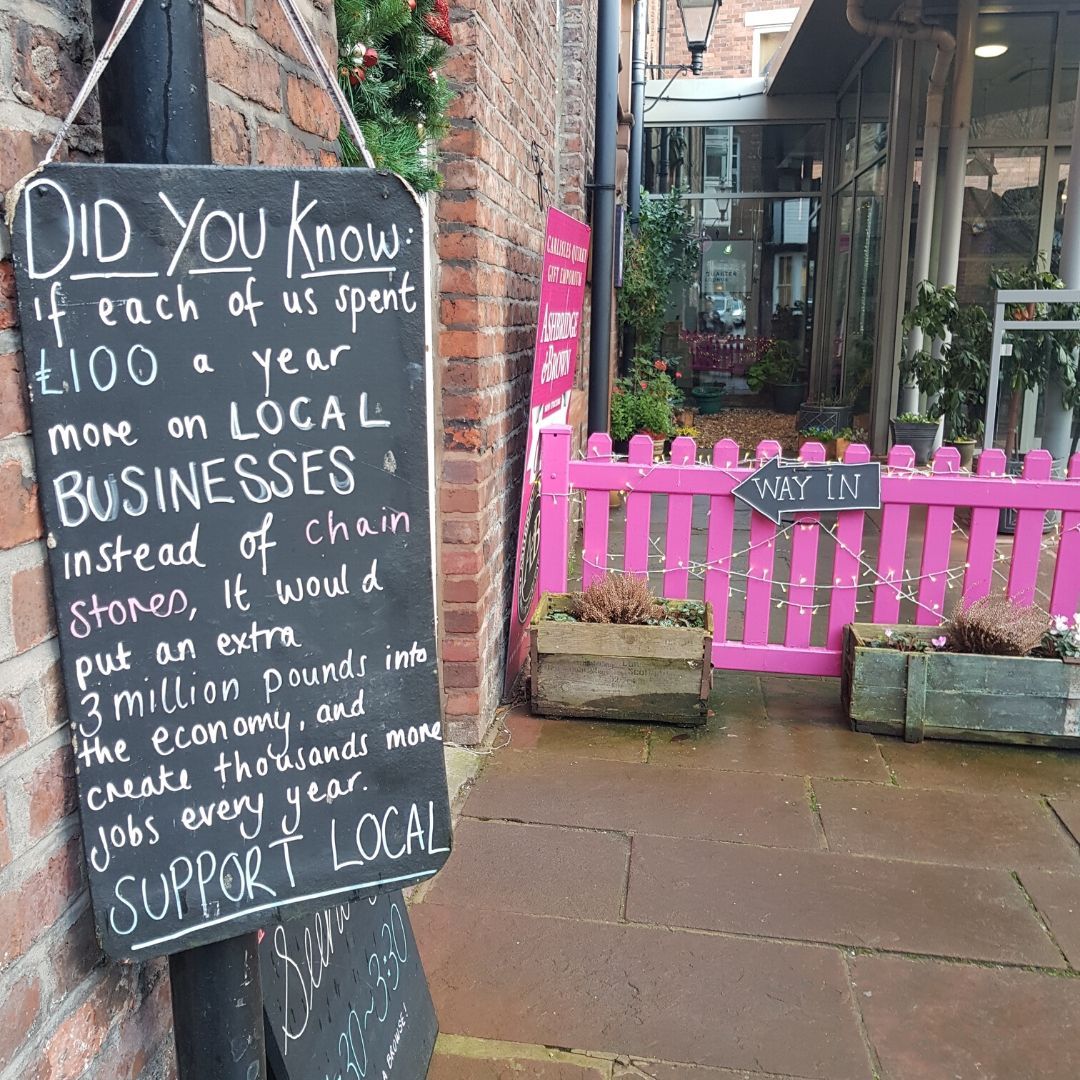 DID YOU Know:
if each of us spent
£100 a year
more on LOCAL
BUSINESSES
instead of chain
stores, it would
put an extra
3 million pounds into
the economy, and
create thousands more
jobs every year.
SUPPORT LOCAL
CARLISLES QUIRKY
GIFT EMPORIUM
ASHBRIDGE
& BROWN
WAY IN
30~3:30
A BROWSE!